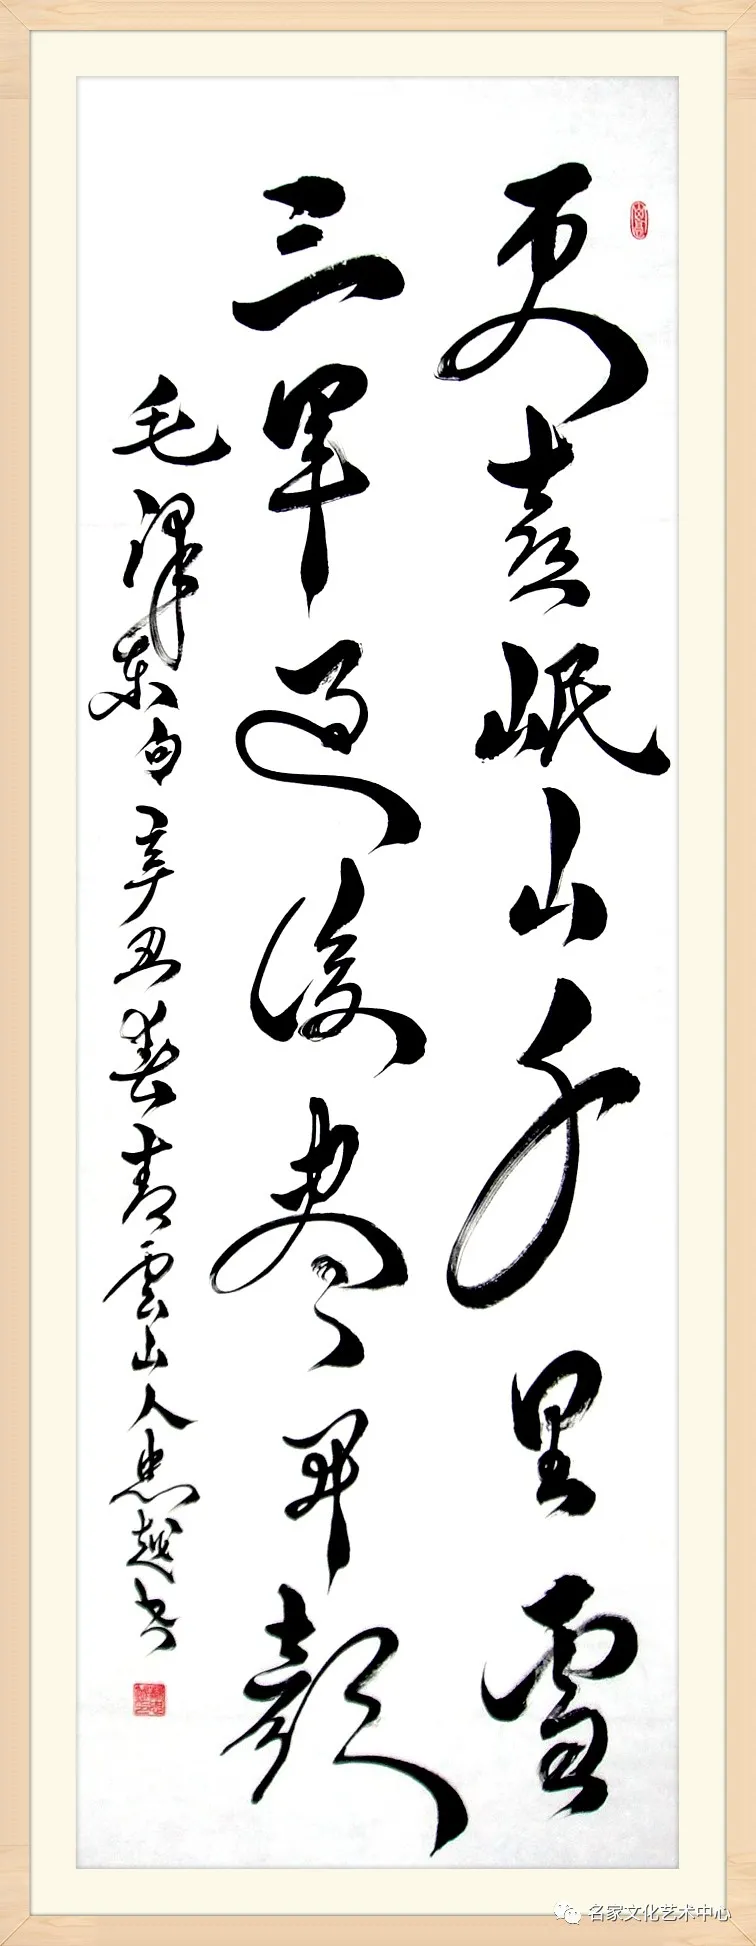 更喜岷山千里雪
三军过后尽开颜
毛泽东句 辛丑春青云山人忠越书
名家文化艺术中心